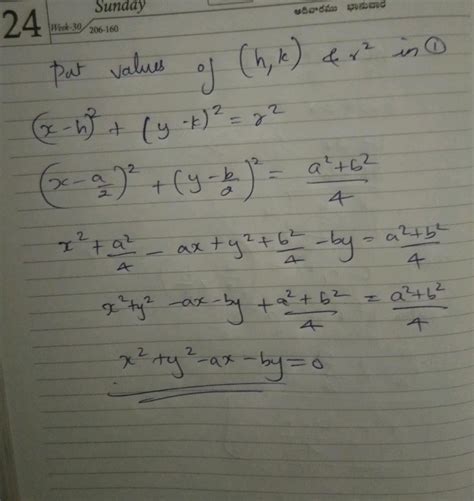 24
Sunday
Week-30 206-160
ఆదివారము ಭಾನುವಾರ
Put values of (h, k) & r² in ①
(x-h)² + (y-k)² = r²
(x - a/2)² + (y - b/2)² = (a²+b²)/4
x² + a²/4 - ax + y² + b²/4 - by = (a²+b²)/4
x²+y² - ax - by + (a²+b²)/4 = (a²+b²)/4
x²+y²-ax-by=0